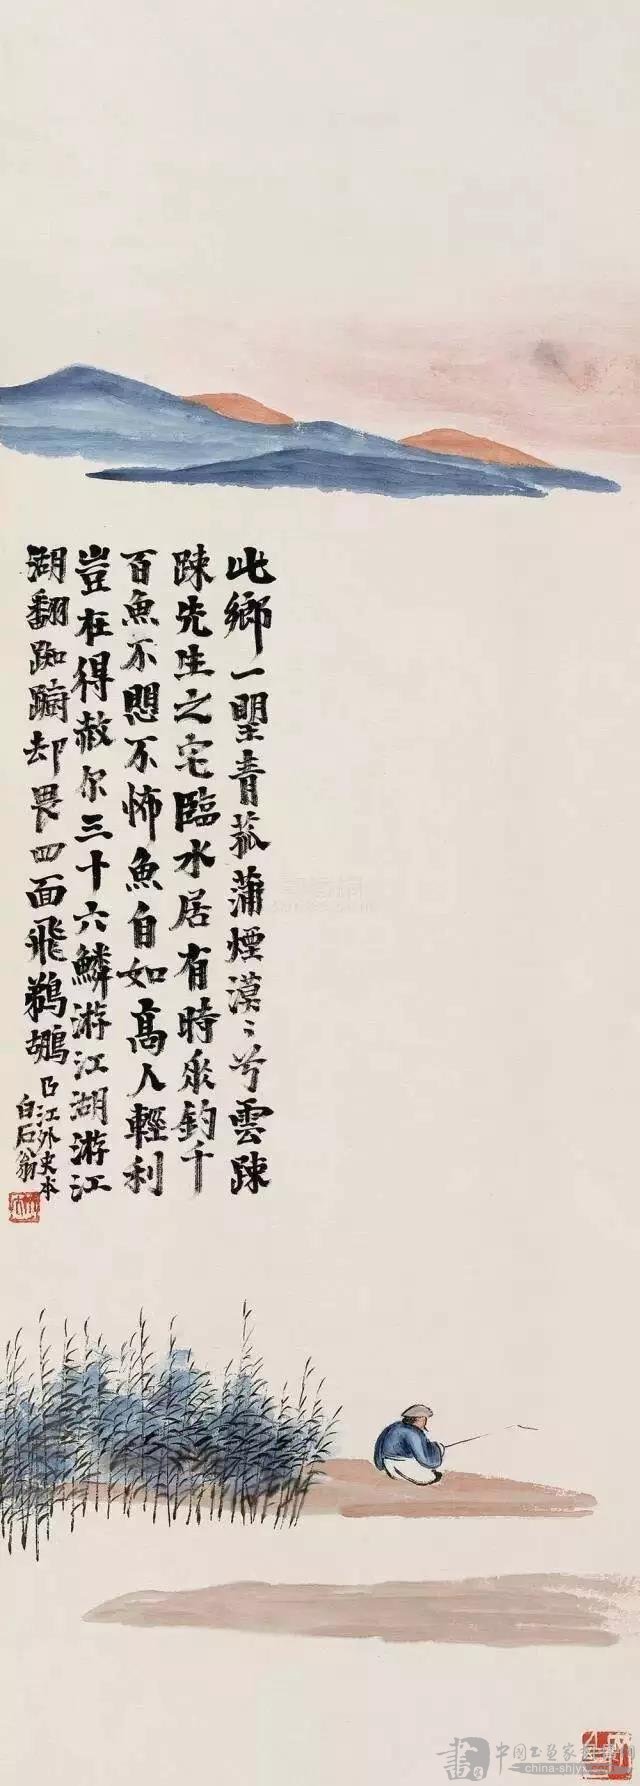 此鄉一望青菰蒲煙漠〻兮雲疎
疎先生之宅臨水居有時垂釣千
百魚不愳不怖魚自如高人輕利
豈在得赦尔三十六鱗游江湖游江
湖翻踟躕却畏四面飛鵜鶘
己江外史本
白石翁
中国书画家
china-shjyx.com